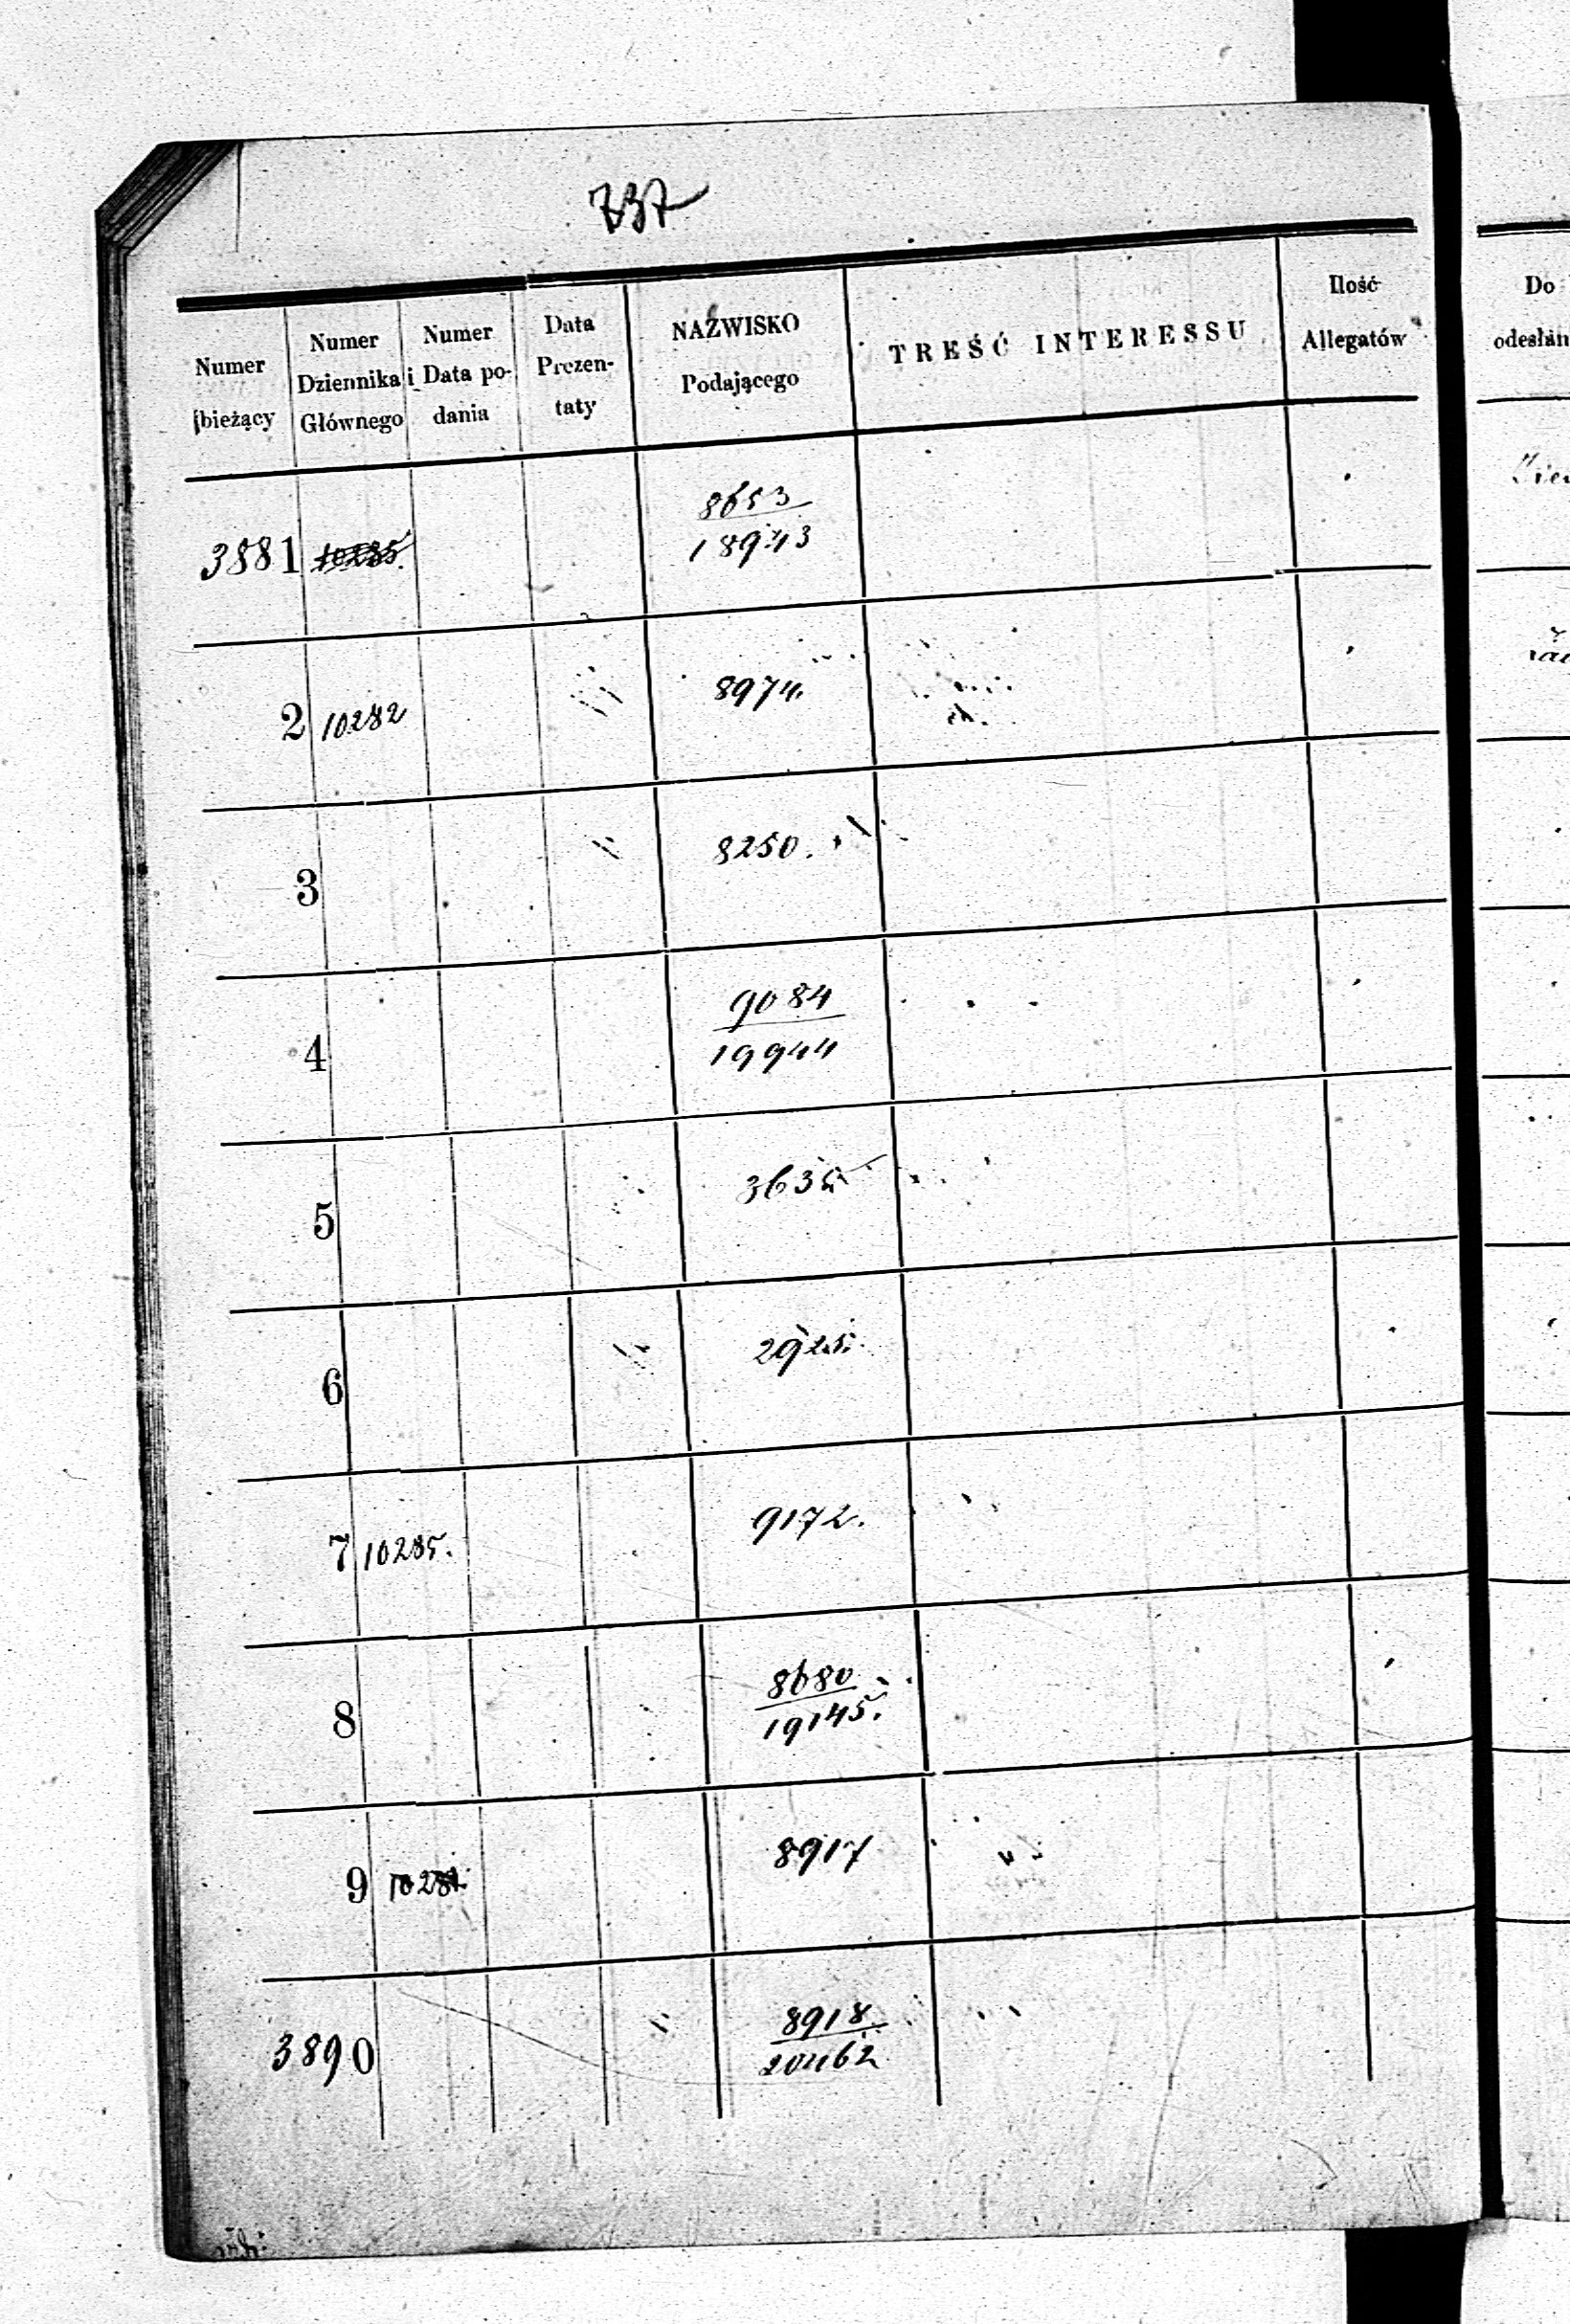 737
Numer bieżący
Numer Dziennika Głównego
Numer i Data podania
Data Prezentaty
NAZWISKO Podającego
TREŚĆ INTERESSU
Ilość Allegatów
Do
3881 10285. 8653
18943
2 10282 8974.
3 8250.
4 9084
19944
5 3635
6 2925.
7 10285. 9172.
8 8680
19145.
9 8917
3890 8918
20462